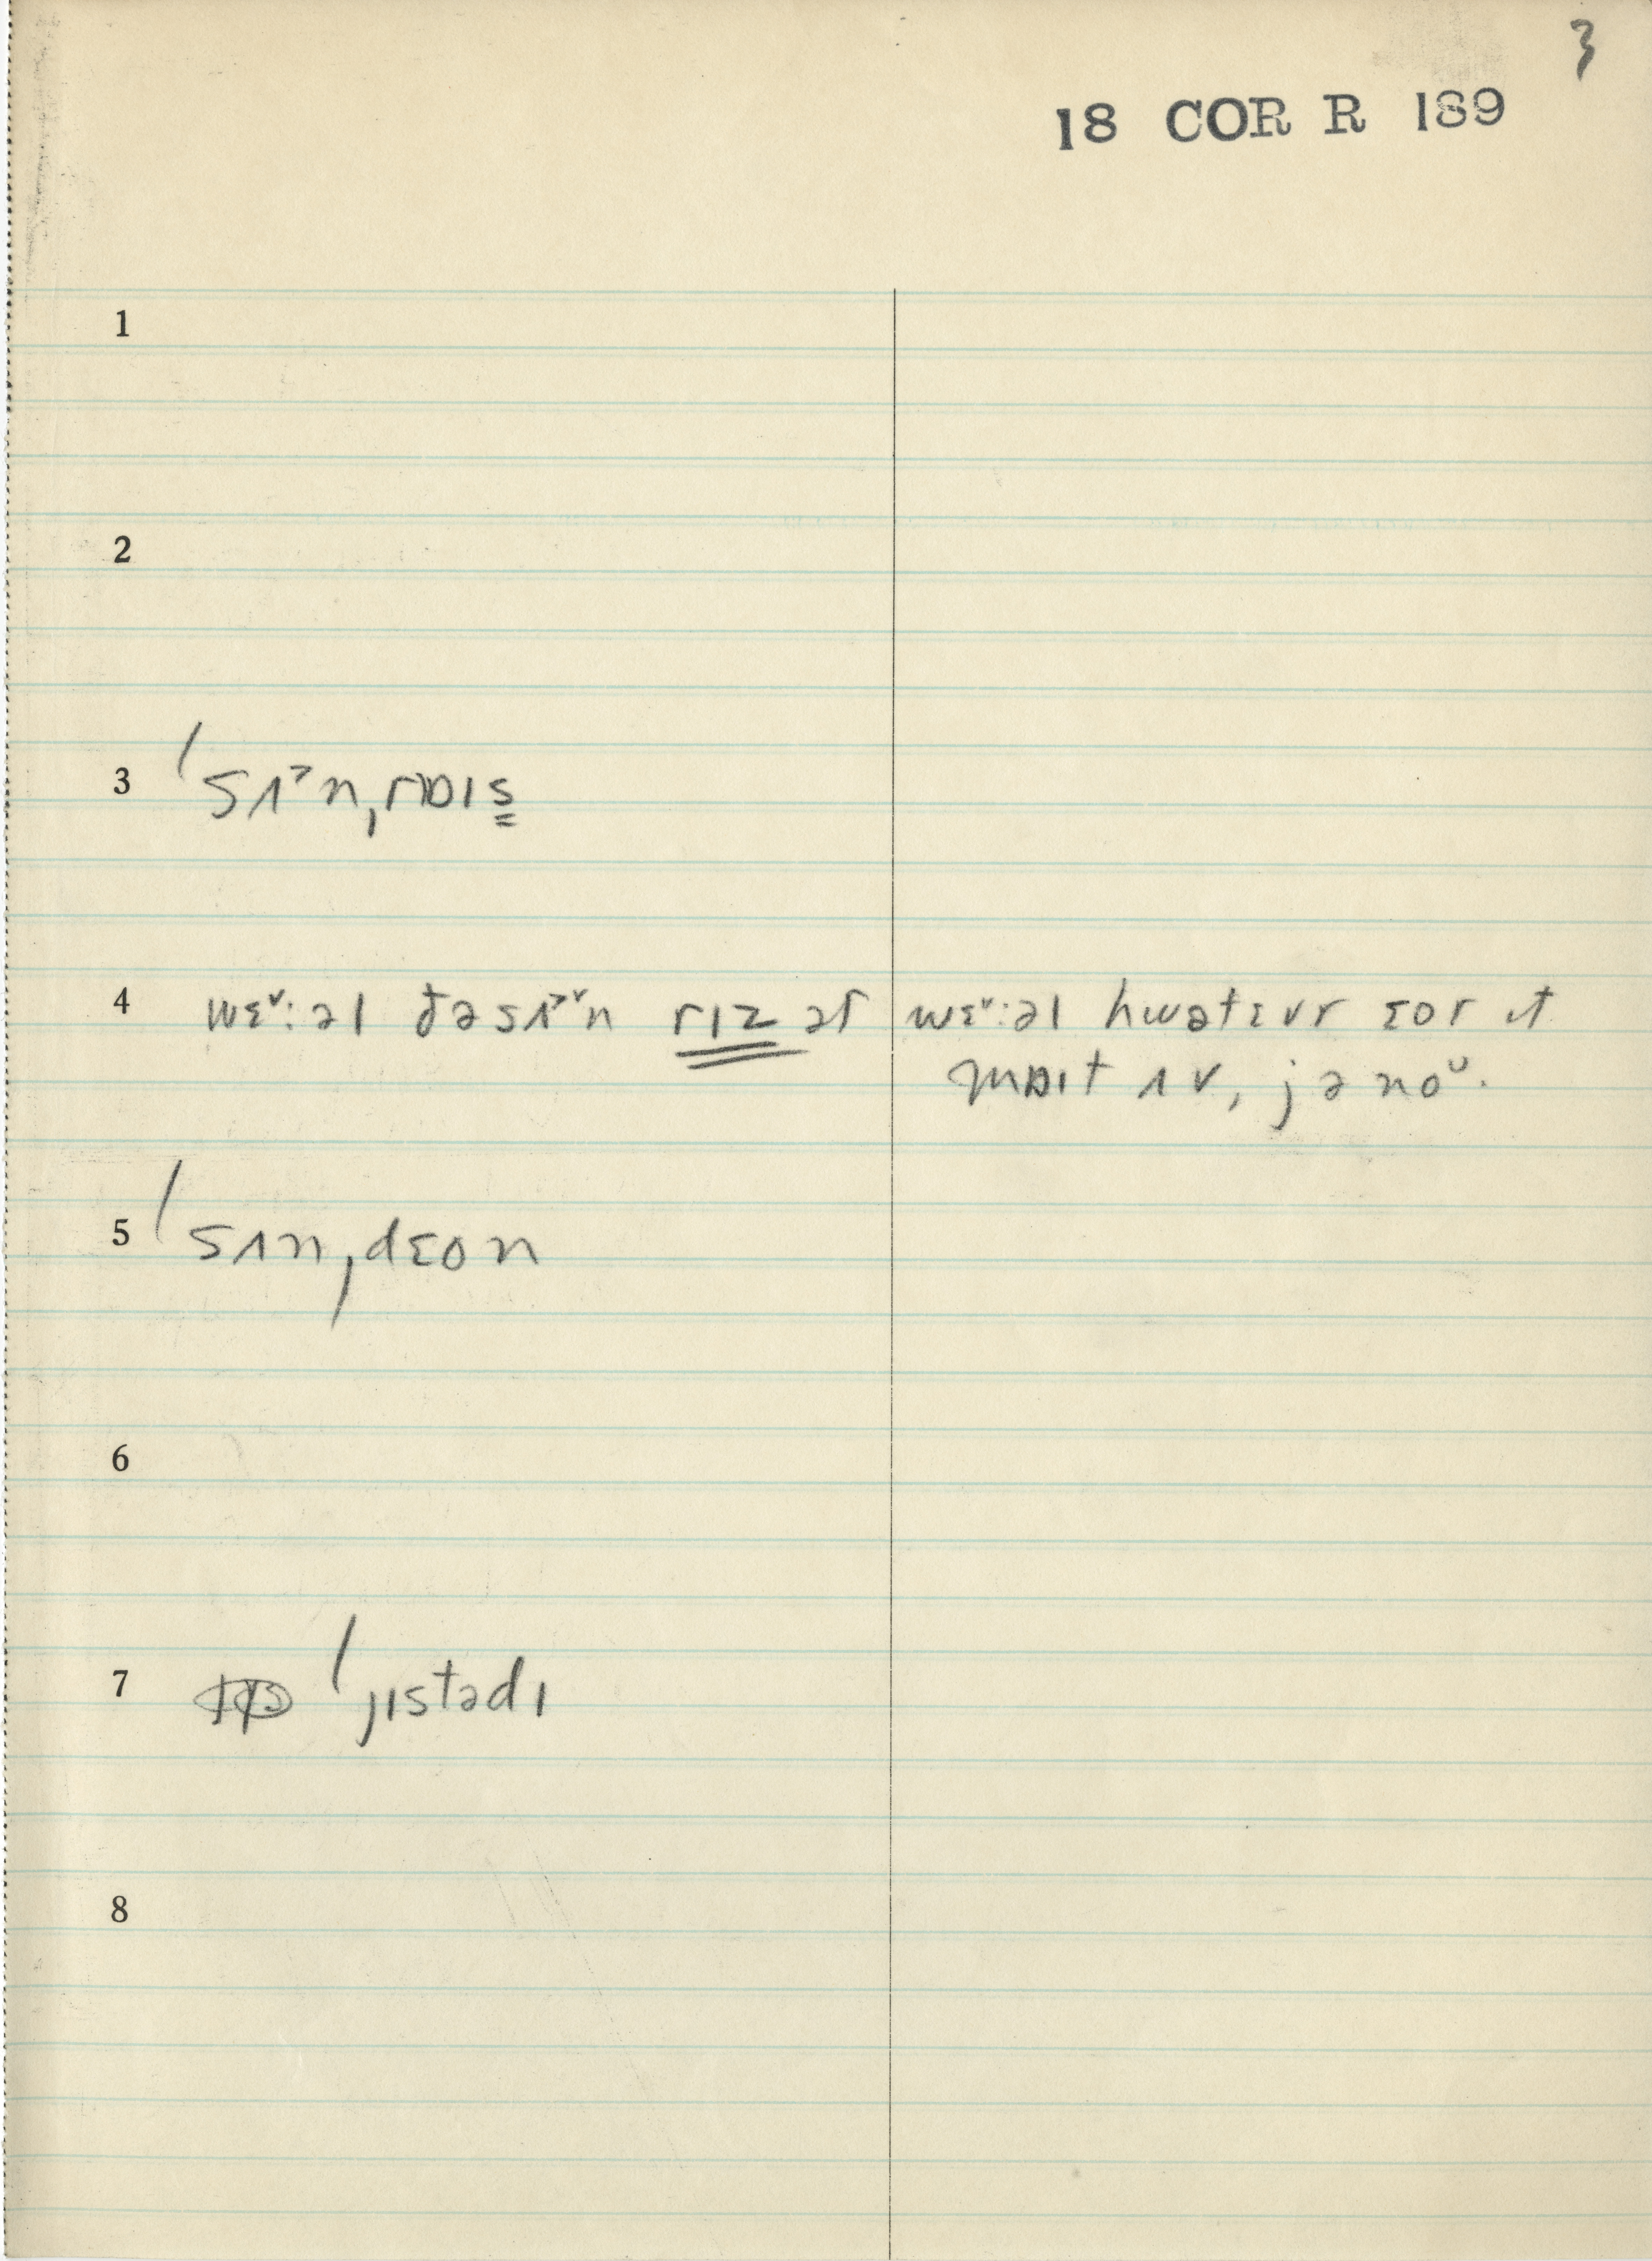 3
18 COR R 189
1
2
3 ˈsʌ˃n,rɒɪs̳
4 wɛ˅:əl ðəsʌ˃˅n rɪz ət wɛ˅:əl hwətɛvr ɛor ɪt
mɒɪt ʌv, jə noᶸ.
5 ˈsʌn,dɛon
6
7 ˈjɪstədɪ
8